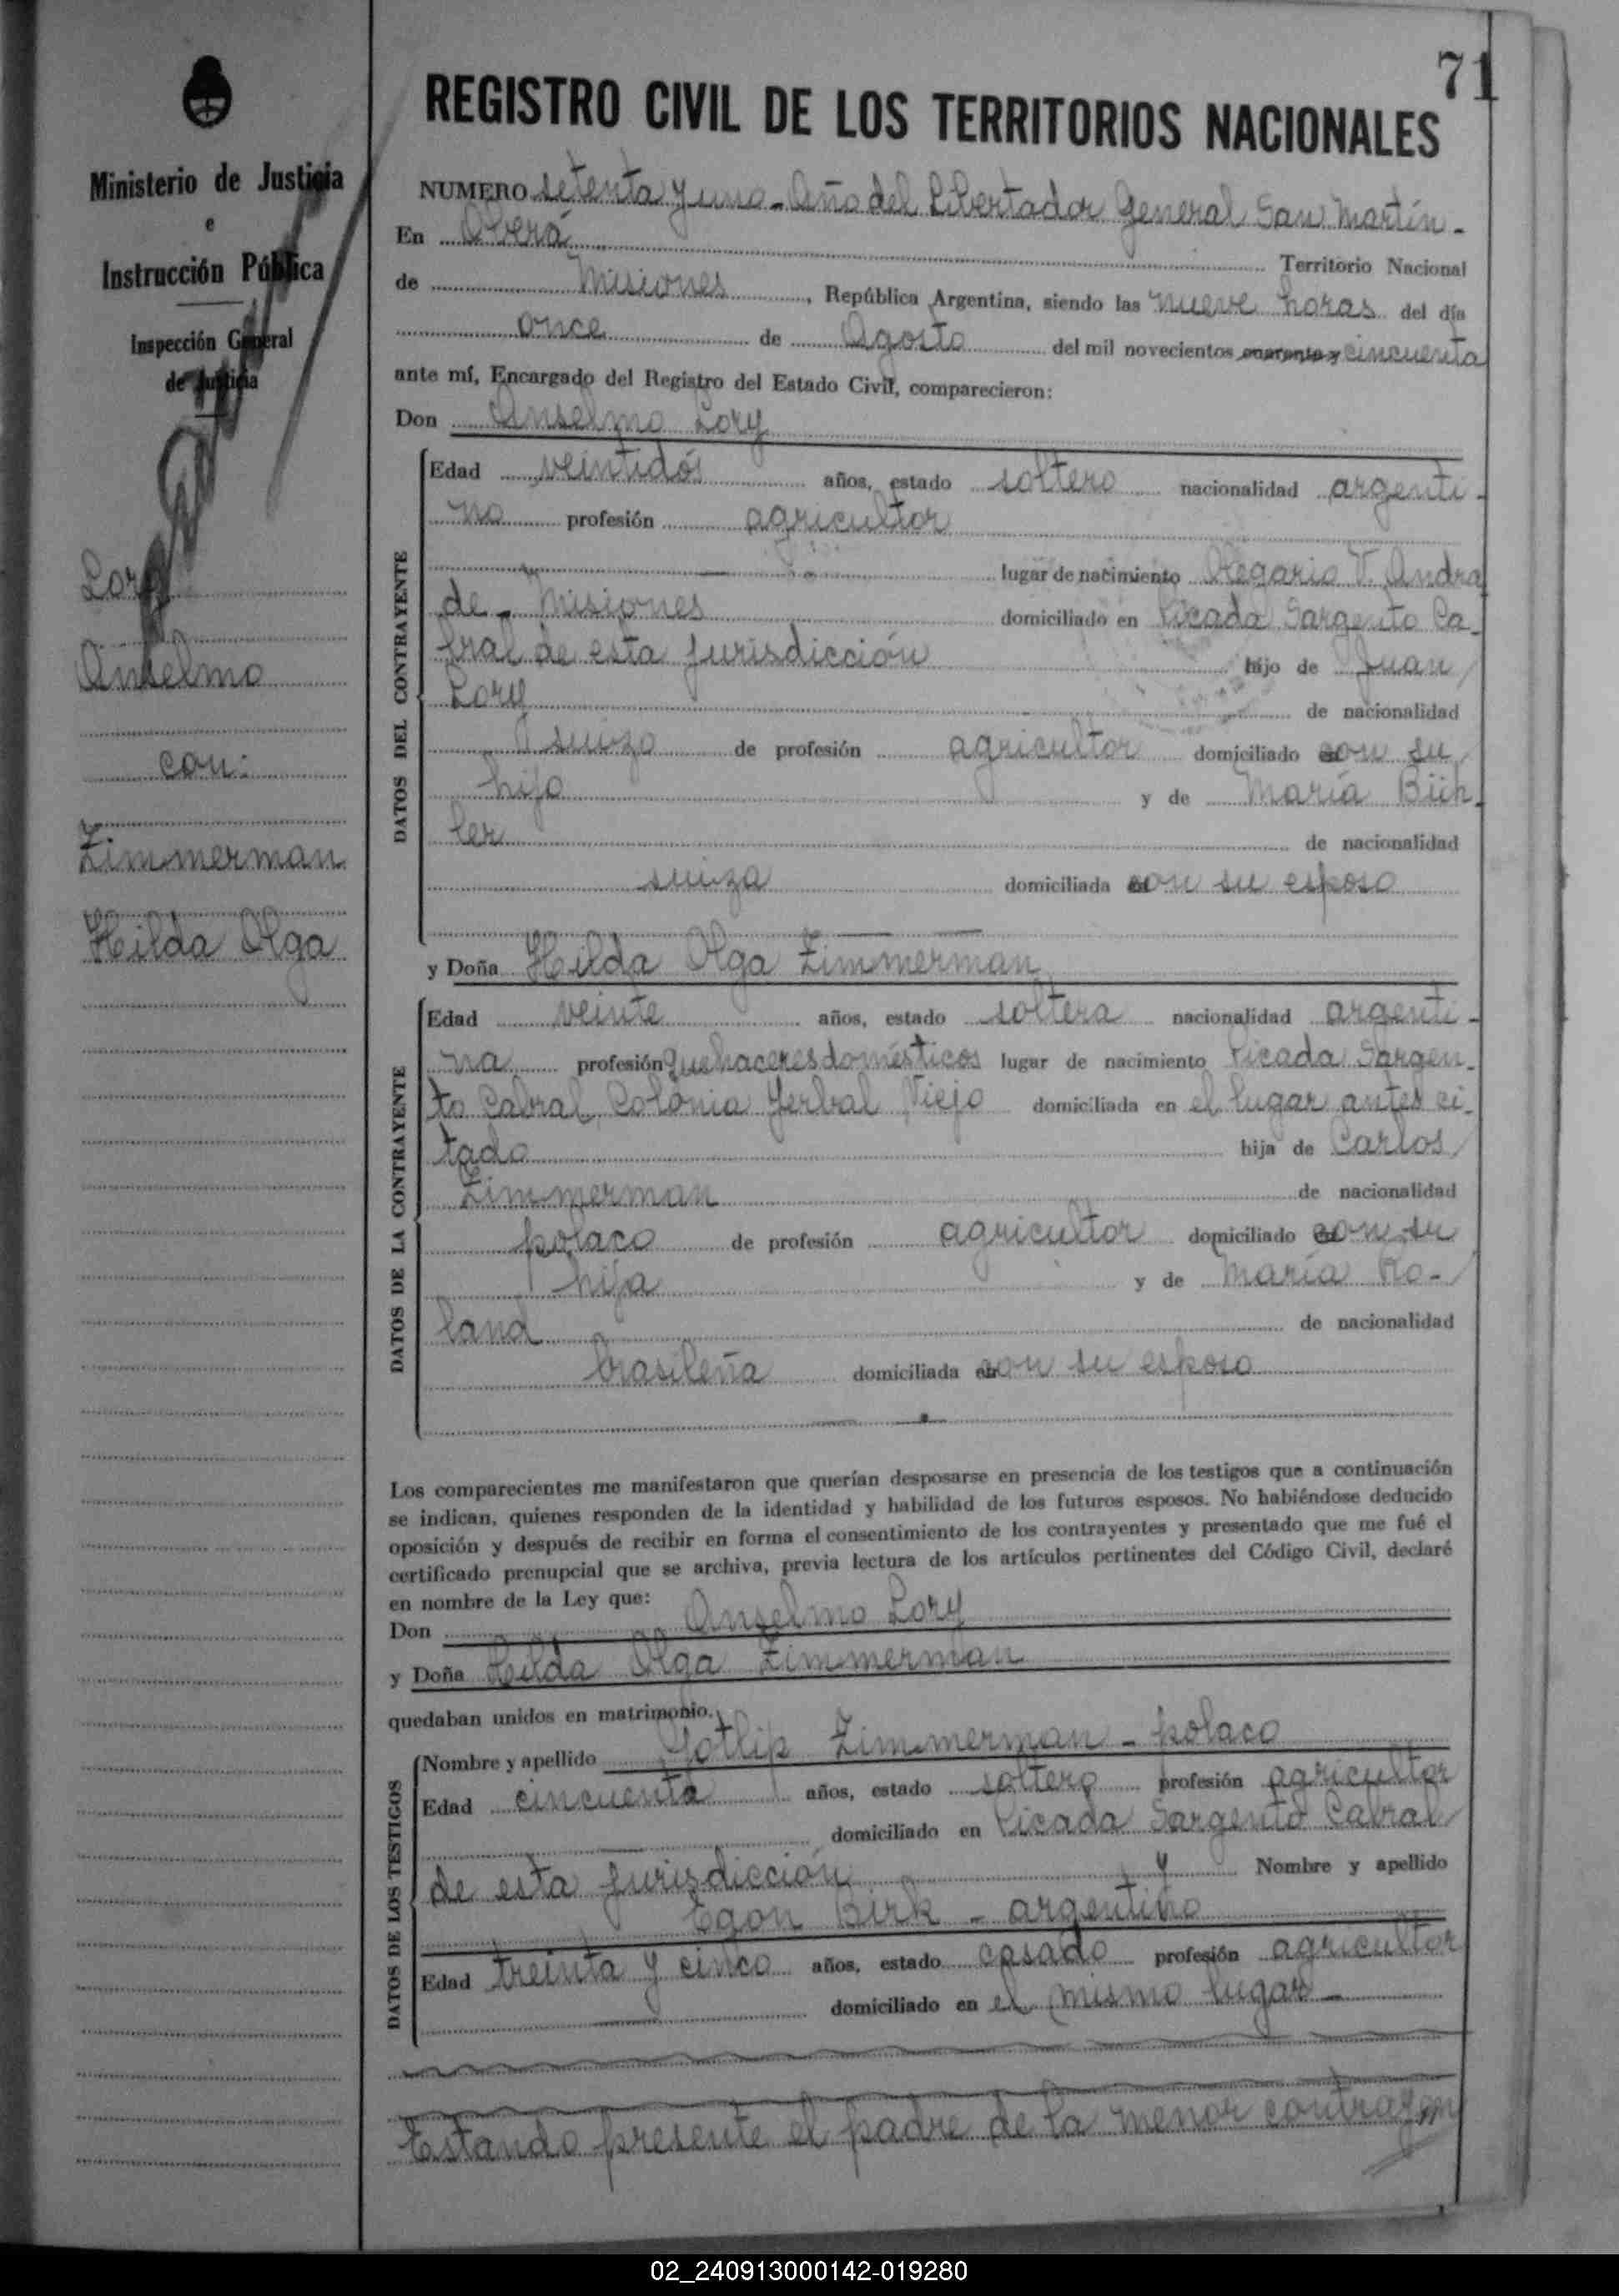 71
REGISTRO CIVIL DE LOS TERRITORIOS NACIONALES
Ministerio de Justicia
e
Instrucción Pública
Inspección General
de Justicia
Lory
Anselmo
con:
Zimmerman
Hilda Olga
NUMERO setenta y uno - Año del Libertador General San Martín -
En Oberá Territorio Nacional
de Misiones, República Argentina, siendo las nueve horas del día
once de Agosto del mil novecientos cuarenta y cincuenta
ante mí, Encargado del Registro del Estado Civil, comparecieron:
Don Anselmo Lory
DATOS DEL CONTRAYENTE
Edad veintidós años, estado soltero nacionalidad argenti-
no profesión agricultor
lugar de nacimiento Olegario V. Andra
de - Misiones domiciliado en Picada Sargento Ca-
bral de esta jurisdicción hijo de Juan
Lory de nacionalidad
suizo de profesión agricultor domiciliado con su
hijo y de María Büh-
ler de nacionalidad
suiza domiciliada con su esposo
y Doña Hilda Olga Zimmerman
DATOS DE LA CONTRAYENTE
Edad veinte años, estado soltera nacionalidad argenti-
na profesión quehaceres domésticos lugar de nacimiento Picada Sargen-
to Cabral, Colonia Yerbal Viejo domiciliada en el lugar antes ci-
tado hija de Carlos
Zimmerman de nacionalidad
polaco de profesión agricultor domiciliado con su
hija y de María Ro-
land de nacionalidad
brasileña domiciliada con su esposo
Los comparecientes me manifestaron que querían desposarse en presencia de los testigos que a continuación
se indican, quienes responden de la identidad y habilidad de los futuros esposos. No habiéndose deducido
oposición y después de recibir en forma el consentimiento de los contrayentes y presentado que me fué el
certificado prenupcial que se archiva, previa lectura de los artículos pertinentes del Código Civil, declaré
en nombre de la Ley que:
Don Anselmo Lory
y Doña Hilda Olga Zimmerman
quedaban unidos en matrimonio.
DATOS DE LOS TESTIGOS
Nombre y apellido Gotlip Zimmerman - polaco
Edad cincuenta años, estado soltero profesión agricultor
domiciliado en Picada Sargento Cabral
de esta jurisdicción y Nombre y apellido
Egon Birk - argentino
Edad treinta y cinco años, estado casado profesión agricultor
domiciliado en el mismo lugar -
Estando presente el padre de la menor contrayen
02_240913000142-019280